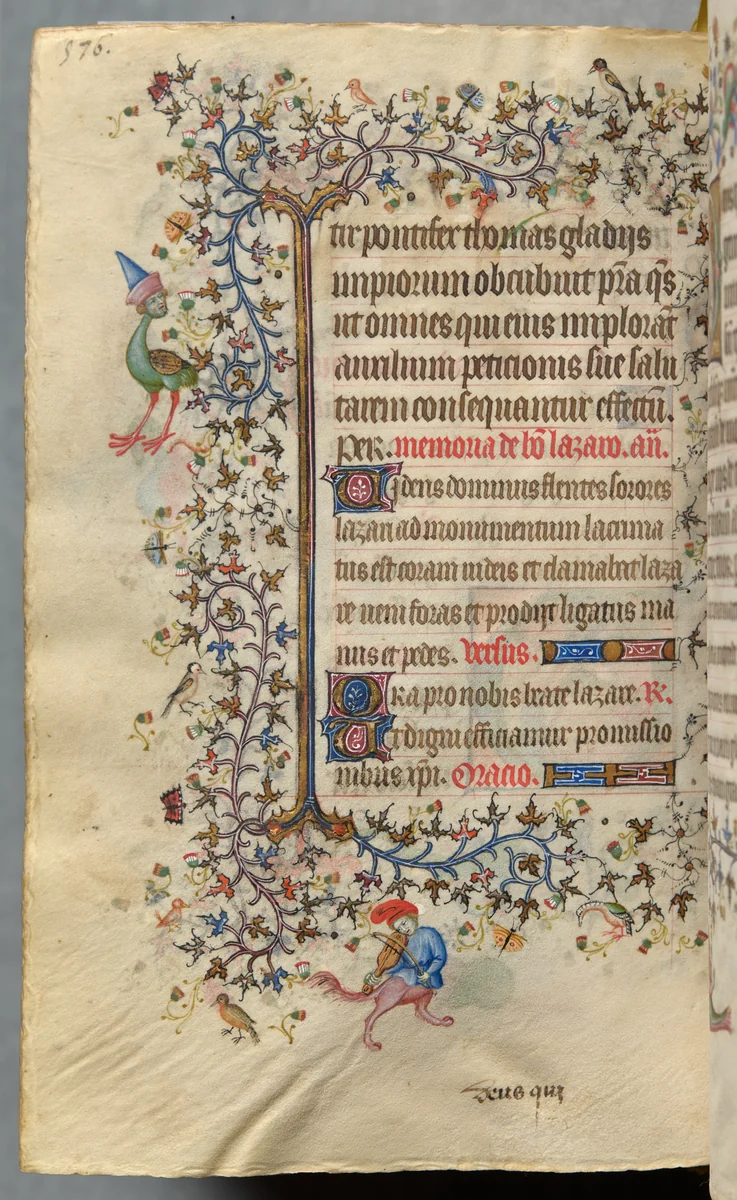 576.
tir pontifex thomas gladijs
impiorum obcubuit p̄ra q̄s
ut omnes qui eius implorāt
auxilium peticionis sue salu
tarem consequantur effectū.
per. memoria de bō lazaro. añ.
Uidens dominus flentes sorores
lazari ad monumentum lacrima
tus est coram iudeis et clamabat laza
re ueni foras et prodijt ligatus ma
nus et pedes. versus.
Ora pro nobis beate lazare. R.
Ut digni efficiamur promissio
nibus xp̄i. Oracio.
deus qui